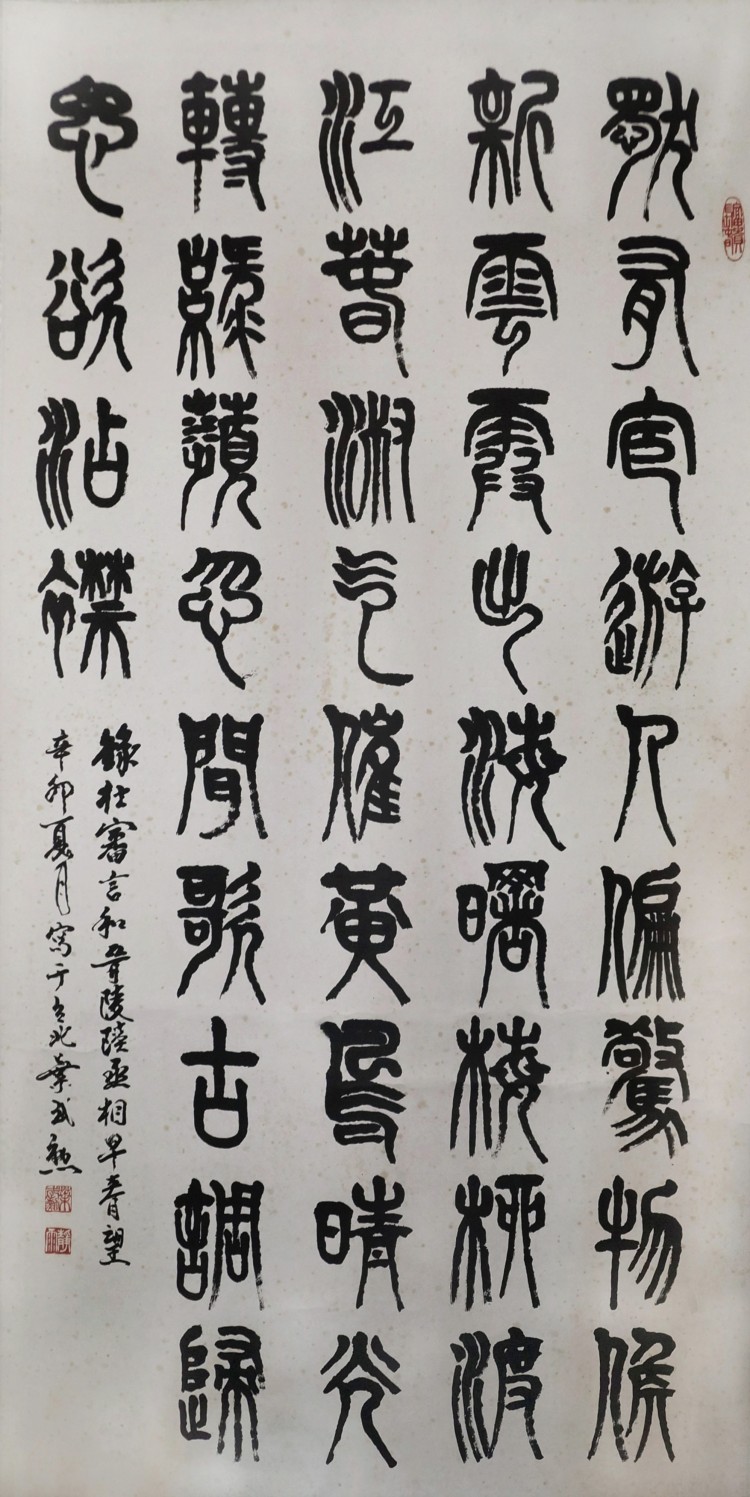 獨有宦遊人偏驚物候
新雲霞出海曙梅柳渡
江春淑气催黃鳥晴光
轉綠蘋忽聞歌古調歸
思欲沾襟
錄杜審言和晉陵陸丞相早春望
辛卯夏月寫于台北葉武勲